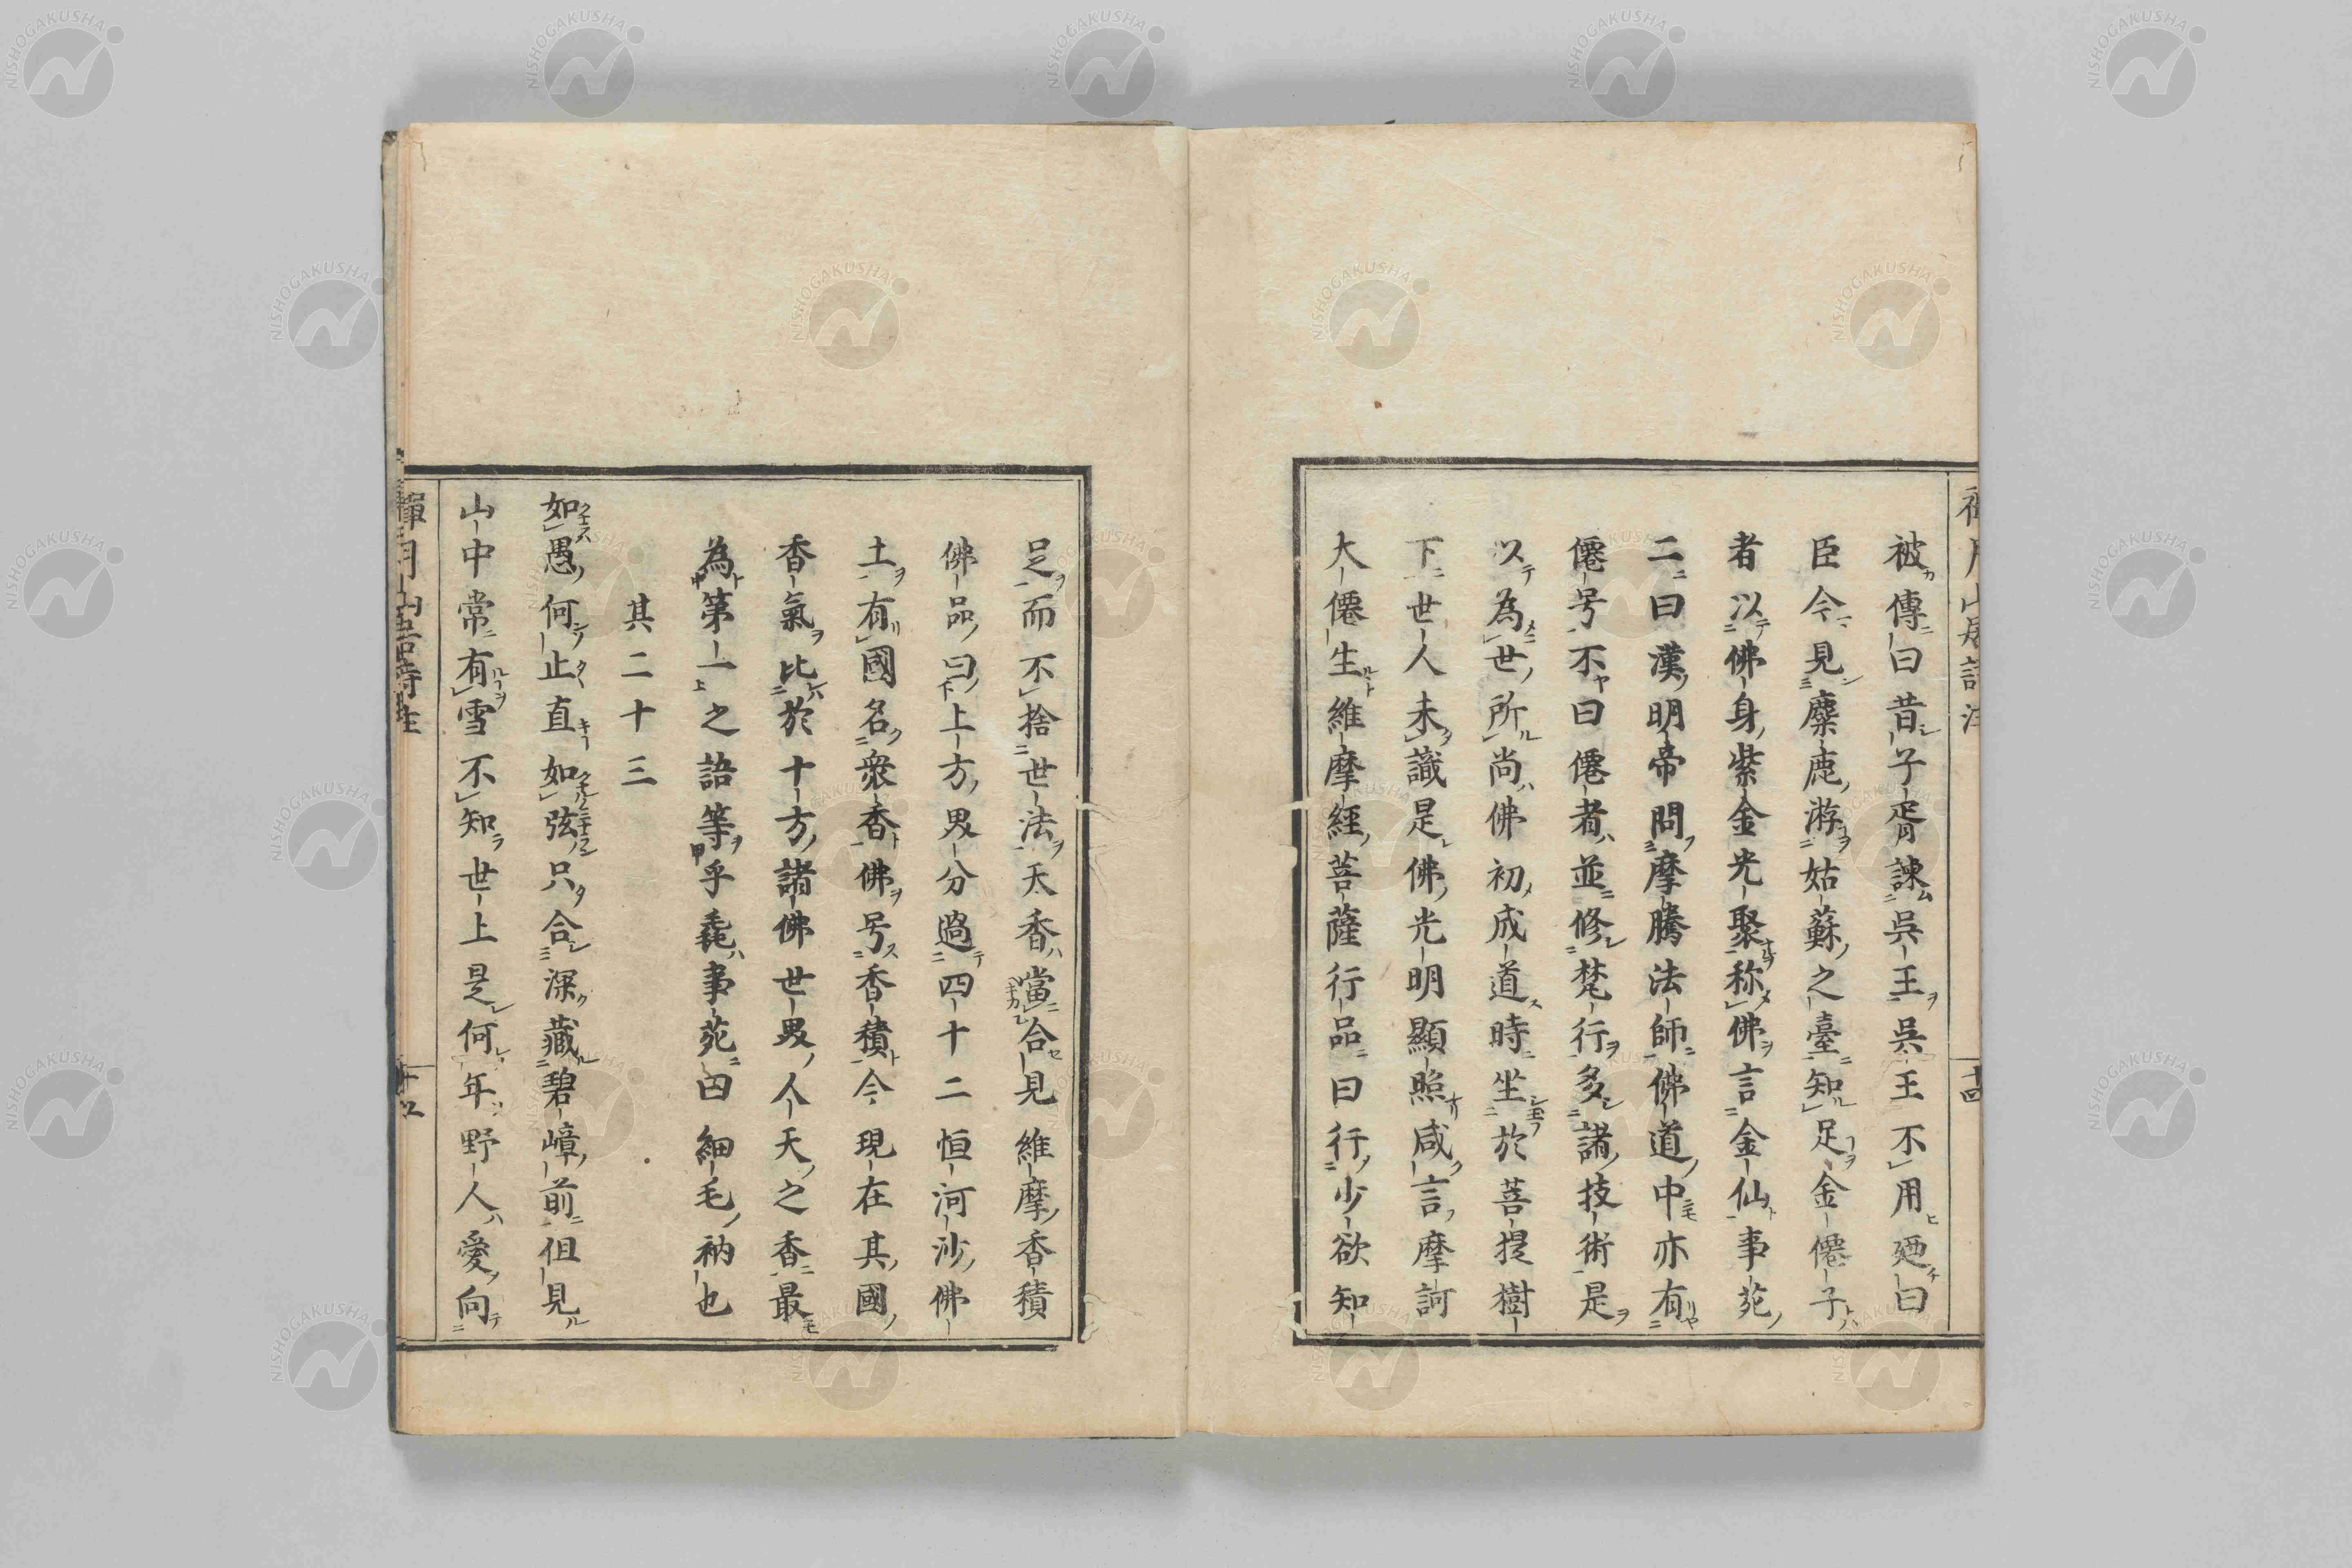 被傳曰昔子胥諫呉王呉王不用廼曰
臣今見麋鹿游姑蘇之臺知足金僊子
者以佛身紫金光聚称佛言金仙事苑
二曰漢明帝問摩騰法師佛道中亦有
僊号不曰僊者並修梵行多諸技術是
以為世所尚佛初成道時坐於菩提樹
下世人未識是佛光明顯照咸言摩訶
大僊生維摩經菩薩行品曰行少欲知
足而不捨世法天香當合見維摩香積
佛品曰上方界分過四十二恒河沙佛
土有國名衆香佛号香積今現在其國
香氣比於十方諸佛世界人天之香最
為第一之語等乎毳事苑曰細毛衲也
其二十三
如愚何止直如弦只合深藏碧嶂前但見
山中常有雪不知世上是何年野人愛向
禪月山居詩註
十四
NISHOGAKUSHA